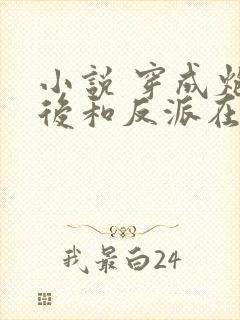 小說 穿成炮
後和反派在
我最白24